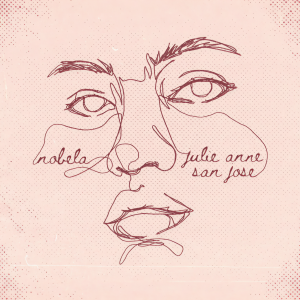 nobela
julie anne
san jose